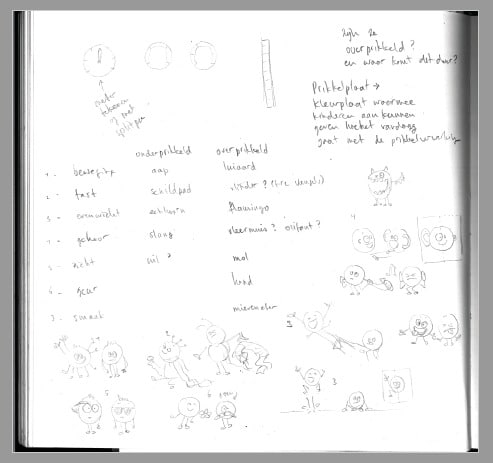 zijn ze
overprikkeld?
en waar komt dit door?
Prikkelplaat →
kleurplaat waarmee
kinderen aan kunnen
geven hoe het vandaag
gaat met de
met
splitpen
onderprikkeld overprikkeld
1 - beweging aap luiaard
2 - tast schildpad
3 - evenwicht eekhoorn flamingo
4 - gehoor slang vleermuis? olifant?
5 - zicht uil? mol
6 - geur hond
7 - smaak miereneter
1
2
3
4
5
6